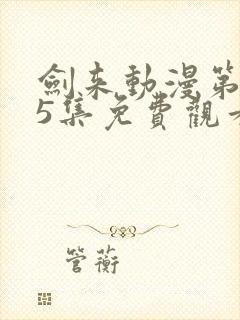 劍来動漫第
5集免費觀看
管蘅